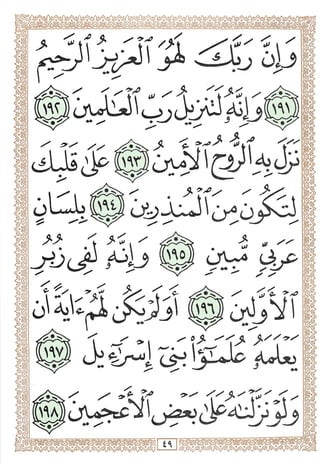 وَإِنَّ رَبَّكَ لَهُوَ ٱلْعَزِيزُ ٱلرَّحِيمُ
١٩١ وَإِنَّهُۥ لَتَنزِيلُ رَبِّ ٱلْعَـٰلَمِينَ ١٩٢
نَزَلَ بِهِ ٱلرُّوحُ ٱلْأَمِينُ ١٩٣ عَلَىٰ قَلْبِكَ
لِتَكُونَ مِنَ ٱلْمُنذِرِينَ ١٩٤ بِلِسَانٍ
عَرَبِىٍّ مُّبِينٍ ١٩٥ وَإِنَّهُۥ لَفِى زُبُرِ
ٱلْأَوَّلِينَ ١٩٦ أَوَلَمْ يَكُن لَّهُمْ ءَايَةً أَن
يَعْلَمَهُۥ عُلَمَـٰٓؤُا۟ بَنِىٓ إِسْرَٰٓءِيلَ ١٩٧
وَلَوْ نَزَّلْنَـٰهُ عَلَىٰ بَعْضِ ٱلْأَعْجَمِينَ ١٩٨
٤٩